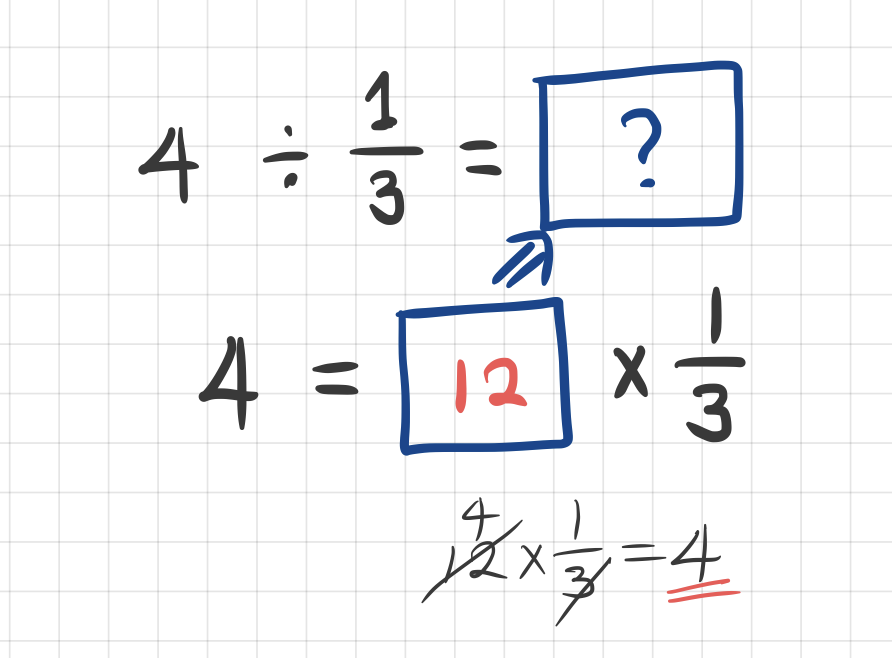 4 ÷ 1/3 = ?
4 = 12 × 1/3
4
12 × 1/3 = 4